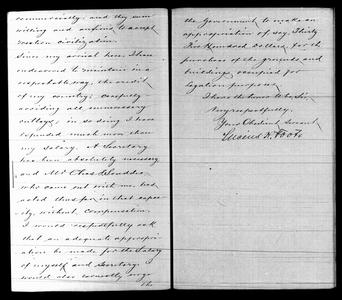 commercially, and they seem
willing and anxious to accept
western civilization.
Since my arrival here, I have
endeavored to maintain in a
respectable way, the credit
of my country; carefully
avoiding all unnecessary
outlay, in so doing I have
expended much more than
my salary. A Secretary
has been absolutely necessary
and Mr Chas
who came out with me, has
acted thus far in that capa-
city, without compensation.
I would respectfully ask
that an adequate appropri-
ation be made for the salary
of myself and Secretary. I
would also earnestly urge
the
the Government to make an
appropriation of say, Thirty
Five Hundred Dollars, for the
purchase of the grounds and
buildings, occupied for
legation purposes.
I have the honor to be Sir
Very respectfully,
Your Obedient Servant
Lucius H. Foote